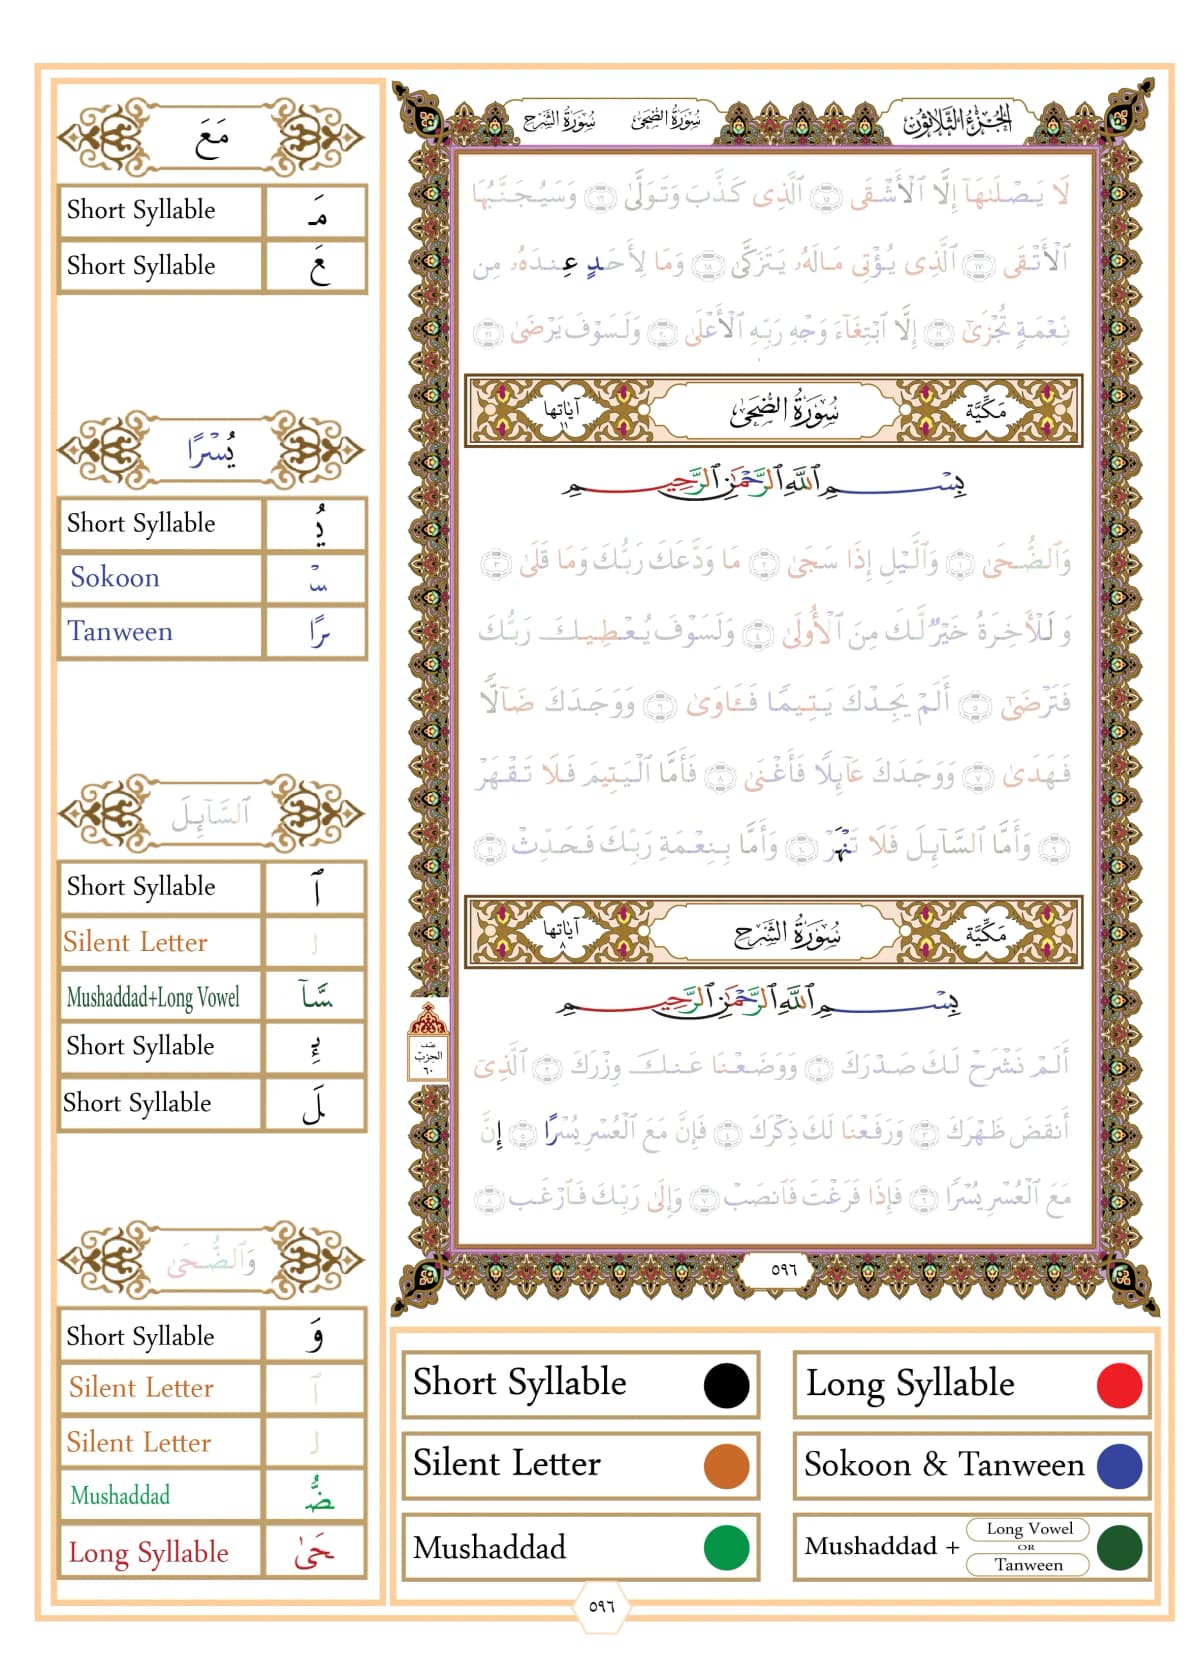 مَعَ
Short Syllable مَـ
Short Syllable عَ
يُسْرًا
Short Syllable يُـ
Sokoon سْـ
Tanween ـرًا
ٱلسَّآئِلَ
Short Syllable ٱ
Silent Letter لـ
Mushaddad+Long Vowel سَّآ
Short Syllable ئِـ
Short Syllable لَ
وَٱلضُّحَىٰ
Short Syllable وَ
Silent Letter ٱ
Silent Letter لـ
Mushaddad ضُّـ
Long Syllable حَىٰ
الجُزْءُ الثَّلَاثُون سُورَةُ الضُّحَى سُورَةُ الشَّرْح
لَا يَصْلَىٰهَآ إِلَّا ٱلْأَشْقَى ١٥ ٱلَّذِى كَذَّبَ وَتَوَلَّىٰ ١٦ وَسَيُجَنَّبُهَا
ٱلْأَتْقَى ١٧ ٱلَّذِى يُؤْتِى مَالَهُۥ يَتَزَكَّىٰ ١٨ وَمَا لِأَحَدٍ عِندَهُۥ مِن
نِّعْمَةٍ تُجْزَىٰٓ ١٩ إِلَّا ٱبْتِغَآءَ وَجْهِ رَبِّهِ ٱلْأَعْلَىٰ ٢٠ وَلَسَوْفَ يَرْضَىٰ ٢١
مَكِّيَّة سُورَةُ الضُّحَى آيَاتها ١١
بِسْمِ ٱللَّهِ ٱلرَّحْمَٰنِ ٱلرَّحِيمِ
وَٱلضُّحَىٰ ١ وَٱلَّيْلِ إِذَا سَجَىٰ ٢ مَا وَدَّعَكَ رَبُّكَ وَمَا قَلَىٰ ٣
وَلَلْأَخِرَةُ خَيْرٌ لَّكَ مِنَ ٱلْأُولَىٰ ٤ وَلَسَوْفَ يُعْطِيكَ رَبُّكَ
فَتَرْضَىٰٓ ٥ أَلَمْ يَجِدْكَ يَتِيمًا فَـَٔاوَىٰ ٦ وَوَجَدَكَ ضَآلًّا
فَهَدَىٰ ٧ وَوَجَدَكَ عَآئِلًا فَأَغْنَىٰ ٨ فَأَمَّا ٱلْيَتِيمَ فَلَا تَقْهَرْ
٩ وَأَمَّا ٱلسَّآئِلَ فَلَا تَنْهَرْ ١٠ وَأَمَّا بِنِعْمَةِ رَبِّكَ فَحَدِّثْ ١١
مَكِّيَّة سُورَةُ الشَّرْح آيَاتها ٨
بِسْمِ ٱللَّهِ ٱلرَّحْمَٰنِ ٱلرَّحِيمِ
نصف الحزب ٦٠
أَلَمْ نَشْرَحْ لَكَ صَدْرَكَ ١ وَوَضَعْنَا عَنكَ وِزْرَكَ ٢ ٱلَّذِىٓ
أَنقَضَ ظَهْرَكَ ٣ وَرَفَعْنَا لَكَ ذِكْرَكَ ٤ فَإِنَّ مَعَ ٱلْعُسْرِ يُسْرًا ٥ إِنَّ
مَعَ ٱلْعُسْرِ يُسْرًا ٦ فَإِذَا فَرَغْتَ فَٱنصَبْ ٧ وَإِلَىٰ رَبِّكَ فَٱرْغَب ٨
٥٩٦
Short Syllable
Long Syllable
Silent Letter
Sokoon & Tanween
Mushaddad
Mushaddad + Long Vowel OR Tanween
٥٩٦